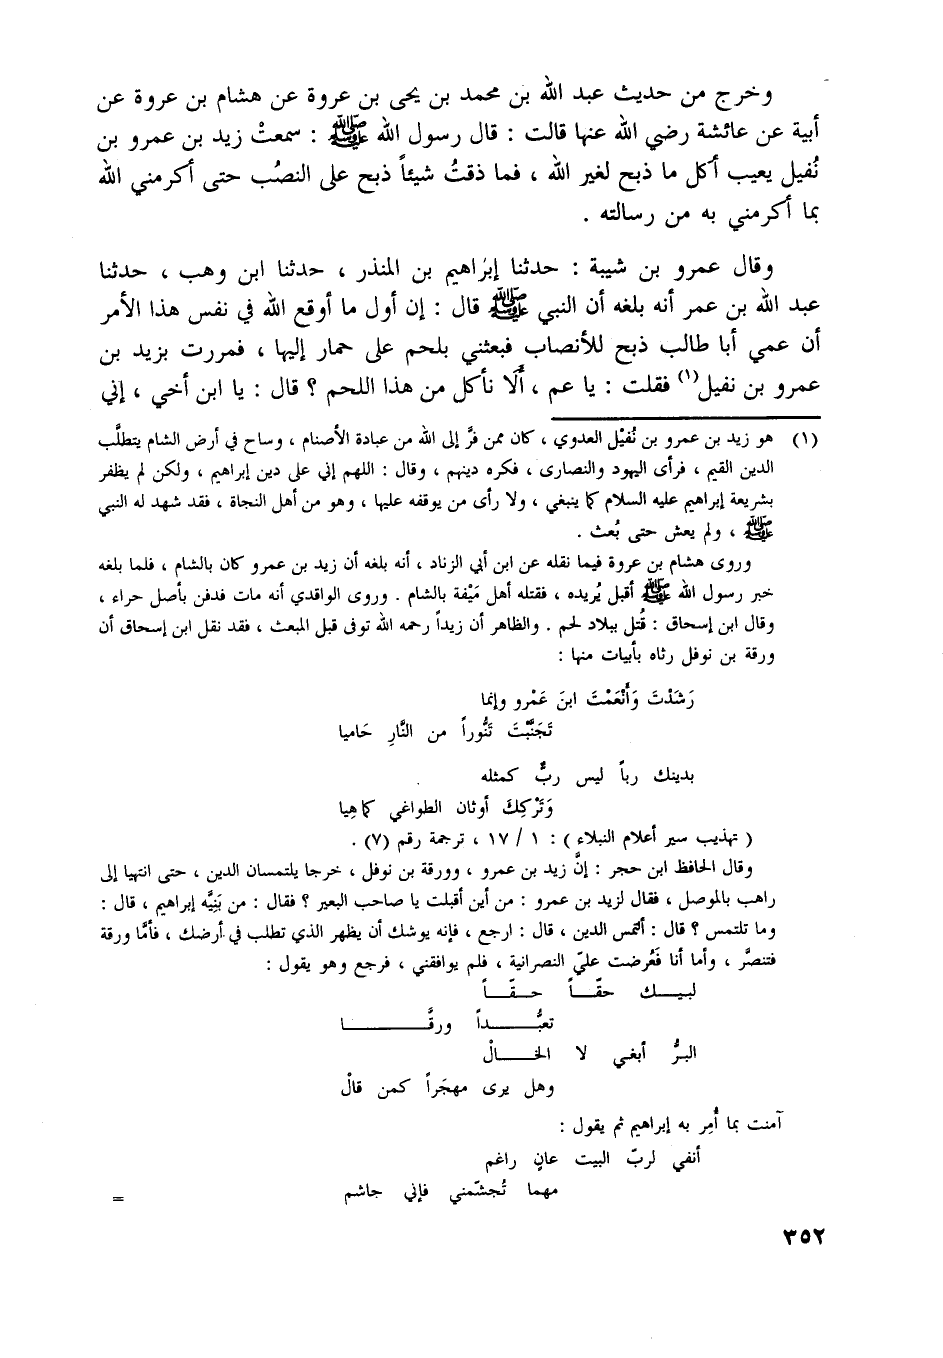 وخرج من حديث عبد الله بن محمد بن يحى بن عروة عن هشام بن عروة عن
أبية عن عائشة رضي الله عنها قالت : قال رسول الله ﷺ : سمعتْ زيد بن عمرو بن
نُفيل يعيب أكل ما ذبح لغير الله ، فما ذقتُ شيئاً ذبح على النصُب حتى أكرمني الله
بما أكرمني به من رسالته .
وقال عمرو بن شيبة : حدثنا إبرٰاهيم بن المنذر ، حدثنا ابن وهب ، حدثنا
عبد الله بن عمر أنه بلغه أن النبي ﷺ قال : إن أول ما أوقع الله في نفس هذا الأمر
أن عمي أبا طالب ذبح للأنصاب فبعثني بلحم على حمار إليها ، فمررت بزيد بن
عمرو بن نفيل(١) فقلت : يا عم ، ألَا نأكل من هذا اللحم ؟ قال : يا ابن أخي ، إني
(١) هو زيد بن عمرو بن نُفيْل العدوي ، كان ممن فرَّ إلى الله من عبادة الأصنام ، وساح في أرض الشام يتطلَّب
الدين القيم ، فرأى اليهود والنصارى ، فكره دينهم ، وقال : اللهم إني على دين إبراهيم ، ولكن لم يظفر
بشريعة إبراهيم عليه السلام كما ينبغي ، ولا رأى من يوقفه عليها ، وهو من أهل النجاة ، فقد شهد له النبي
ﷺ ، ولم يعش حتى بُعث .
وروى هشام بن عروة فيما نقله عن ابن أبي الزناد ، أنه بلغه أن زيد بن عمرو كان بالشام ، فلما بلغه
خبر رسول الله ﷺ أقبل يُريده ، فقتله أهل مَيْفة بالشام . وروى الواقدي أنه مات فدفن بأصل حراء ،
وقال ابن إسحاق : قُتل ببلاد لحم . والظاهر أن زيداً رحمه الله توفى قبل المبعث ، فقد نقل ابن إسحاق أن
ورقة بن نوفل رثاه بأبيات منها :
رَشَدْتَ وَأَنْعَمْتَ ابنَ عَمْرو وإنما
تَجَنَّبْتَ تَنُّوراً من النَّارِ حَاميا
بدينك رباً ليس ربٌّ كمثله
وَتَرْكِكَ أوثان الطواغي كما هِيا
( تهذيب سير أعلام النبلاء ) : ١ / ١٧ ، ترجمة رقم (٧) .
وقال الحافظ ابن حجر : إنَّ زيد بن عمرو ، وورقة بن نوفل ، خرجا يلتمسان الدين ، حتى انتهيا إلى
راهب بالموصل ، فقال لزيد بن عمرو : من أين أقبلت يا صاحب البعير ؟ فقال : من بَنِيَّه إبراهيم ، قال :
وما تلتمس ؟ قال : ألتمس الدين ، قال : ارجع ، فإنه يوشك أن يظهر الذي تطلب في أرضك ، فأمَّا ورقة
فتنصَّر ، وأما أنا فَعُرضت عليّ النصرانية ، فلم يوافقني ، فرجع وهو يقول :
لبيـــك حقّـــاً حــقّـــاً
تعبُّـــــداً ورقَّـــــــا
البـرُّ أبغي لا الخـــــالْ
وهل يرى مهجَراً كمن قالْ
آمنت بما أُمِر به إبراهيم ثم يقول :
أنفي لربّ البيت عانٍ راغم
مهما تُجشّمني فإني جاشم
=
٣٥٢